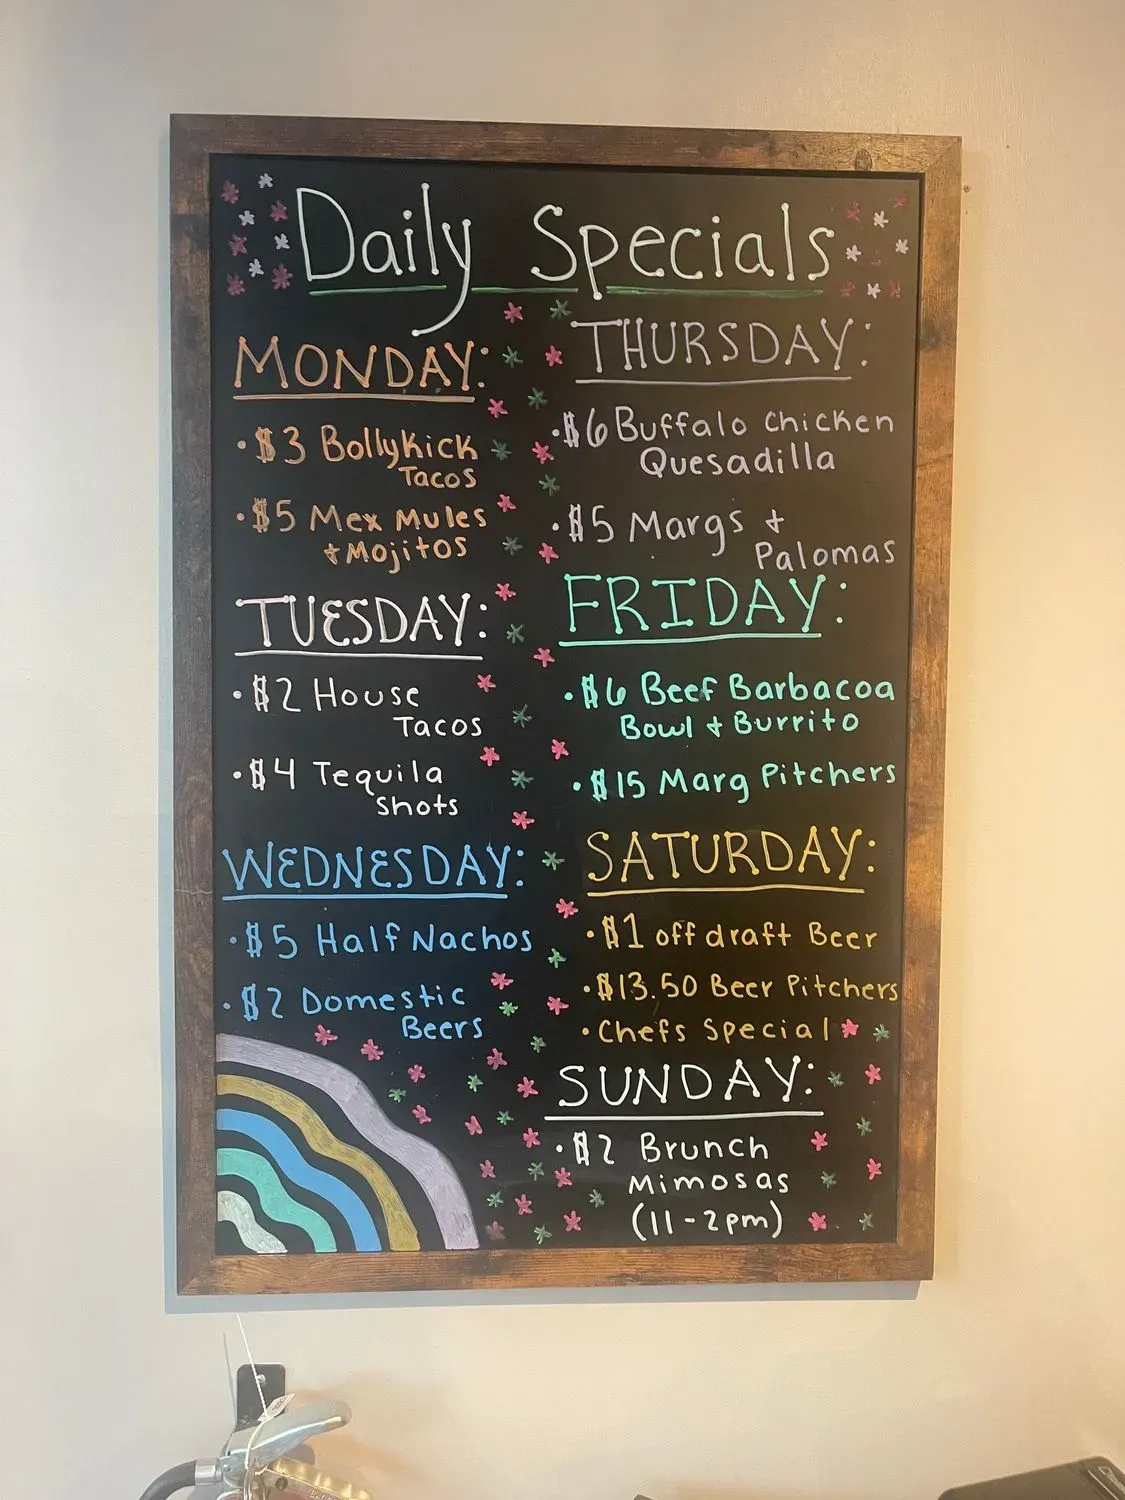 Daily Specials
MONDAY:
• $3 Bollykick
Tacos
• $5 Mex Mules
+ Mojitos
TUESDAY:
• $2 House
Tacos
• $4 Tequila
Shots
WEDNESDAY:
• $5 Half Nachos
• $2 Domestic
Beers
THURSDAY:
• $6 Buffalo Chicken
Quesadilla
• $5 Margs +
Palomas
FRIDAY:
• $6 Beef Barbacoa
Bowl + Burrito
• $15 Marg Pitchers
SATURDAY:
• $1 off draft Beer
• $13.50 Beer Pitchers
• Chefs Special
SUNDAY:
• $2 Brunch
Mimosas
(11-2pm)